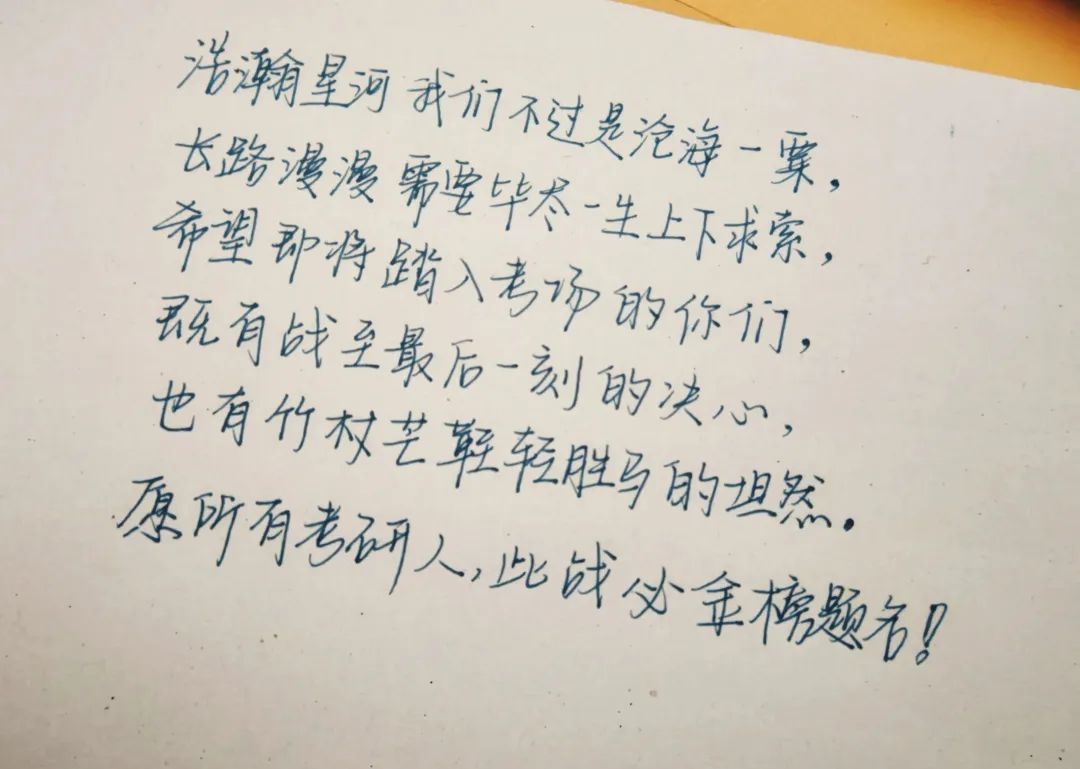 浩瀚星河我们不过是沧海一粟，
长路漫漫需要毕尽一生上下求索，
希望即将踏入考场的你们，
既有战至最后一刻的决心，
也有竹杖芒鞋轻胜马的坦然。
愿所有考研人，此战必金榜题名！